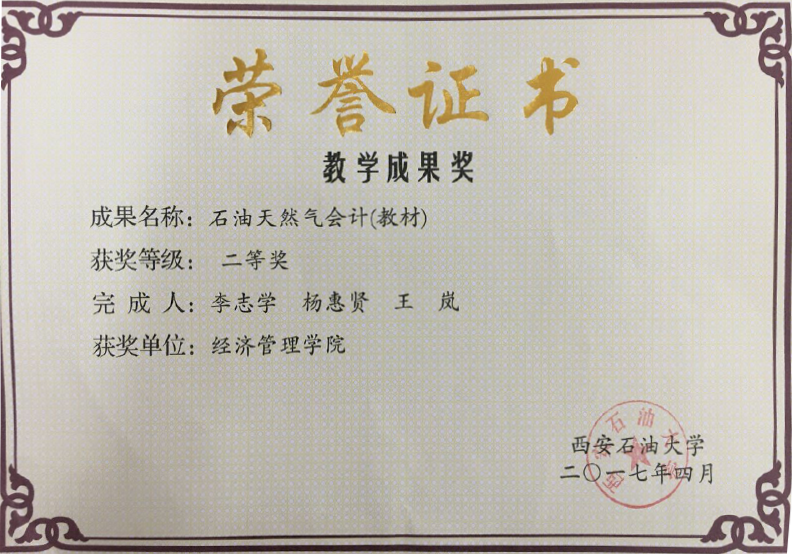 荣誉证书
教学成果奖
成果名称：石油天然气会计(教材)
获奖等级： 二等奖
完 成 人：李志学 杨惠贤 王 岚
获奖单位：经济管理学院
西安石油大学
西安石油大学
二〇一七年四月